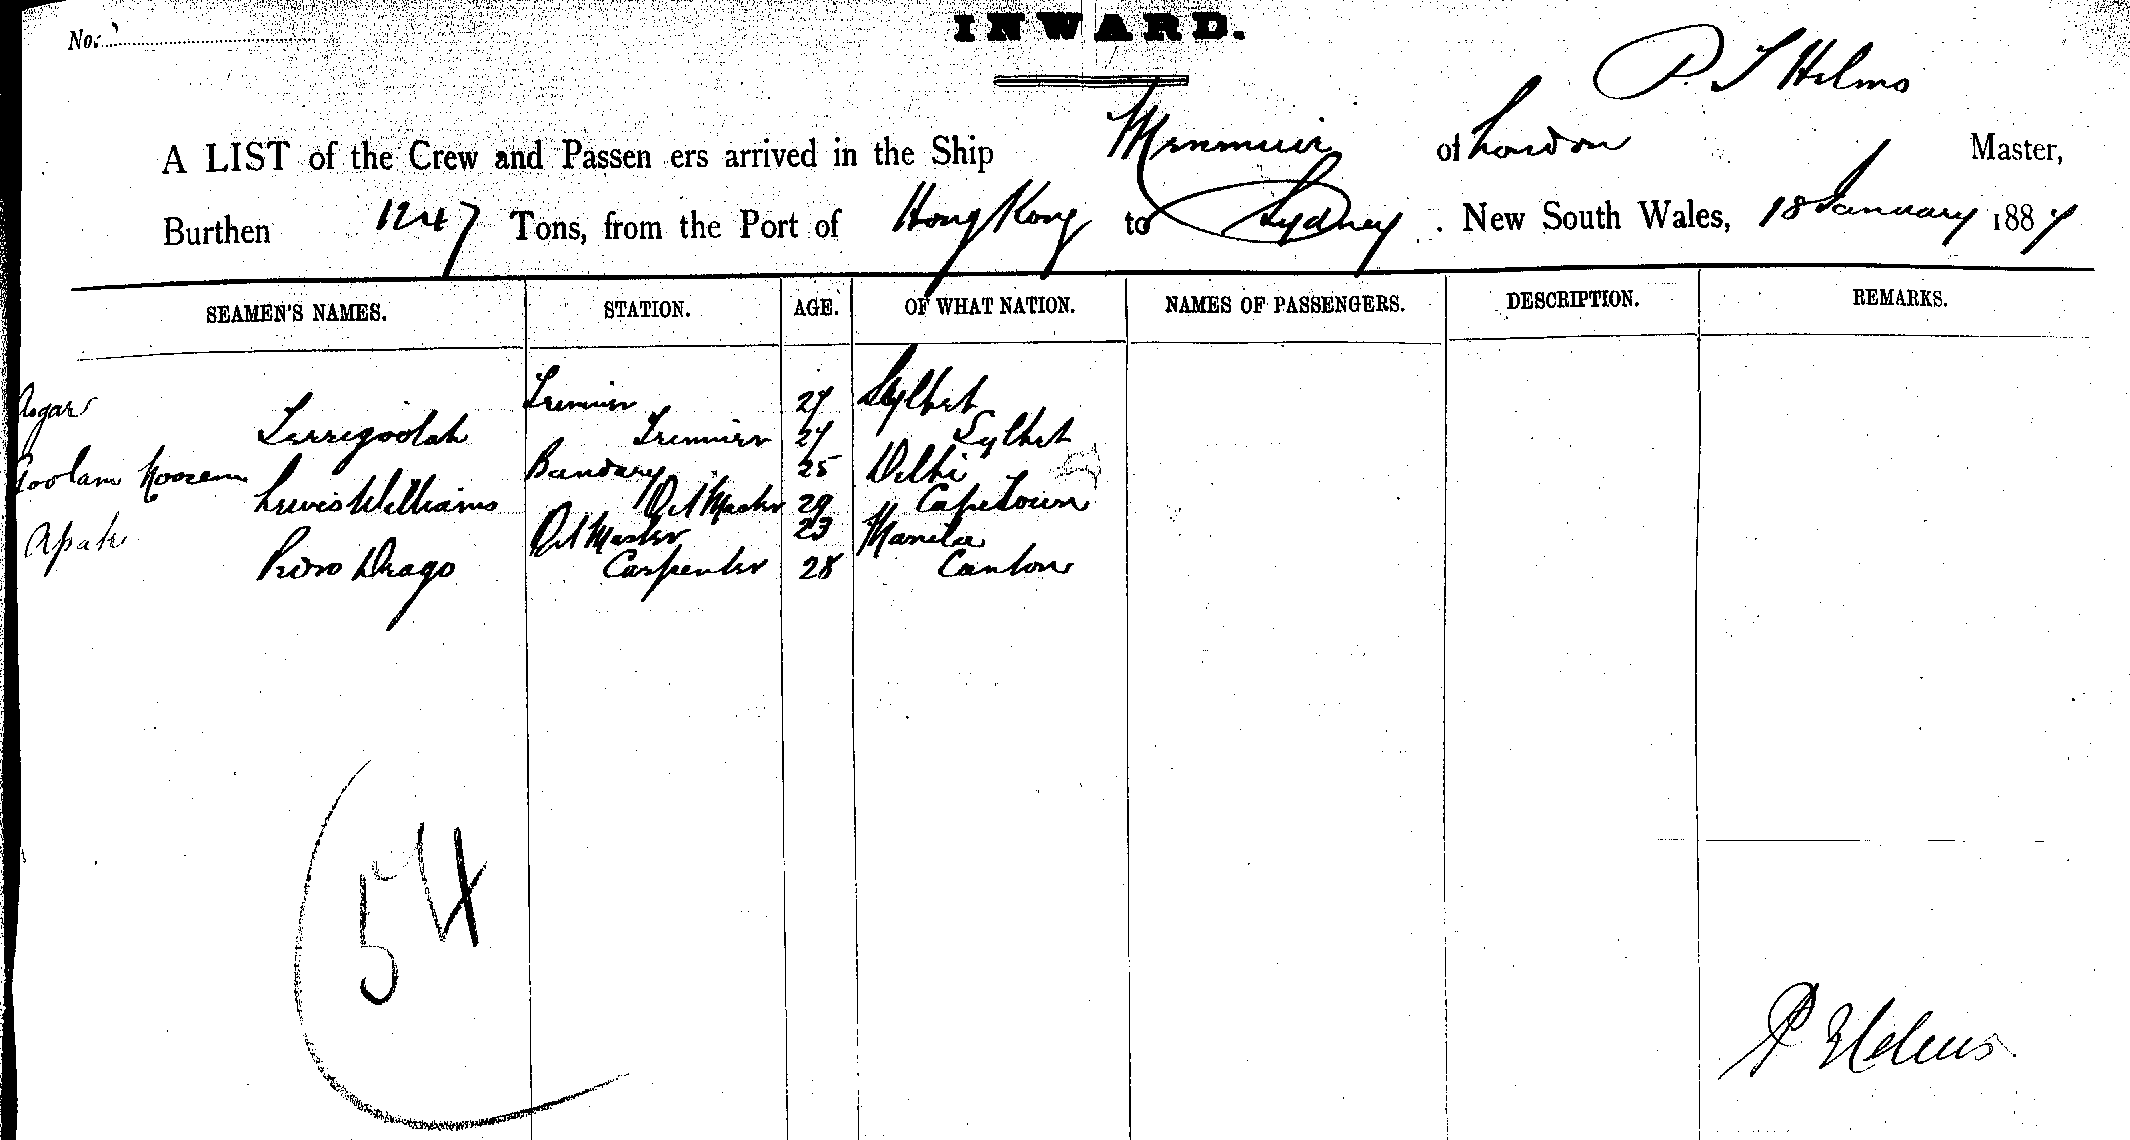 No.
INWARD.
P. T Helms
A LIST of the Crew and Passen ers arrived in the Ship Menmuir of London Master,
Burthen 1247 Tons, from the Port of Hong Kong to Sydney . New South Wales, 18 January 1887
SEAMEN'S NAMES. STATION. AGE. OF WHAT NATION. NAMES OF PASSENGERS. DESCRIPTION. REMARKS.
Trimmer 27 Sylhet
Trimmer 24 Sylhet
Goolam Hoosen Bandary 25 Delhi
Lewis Williams Qrt Master 29 Capetown
Qrt Master 23 Manila
Drago Carpenter 28 Canton
54
P Helms